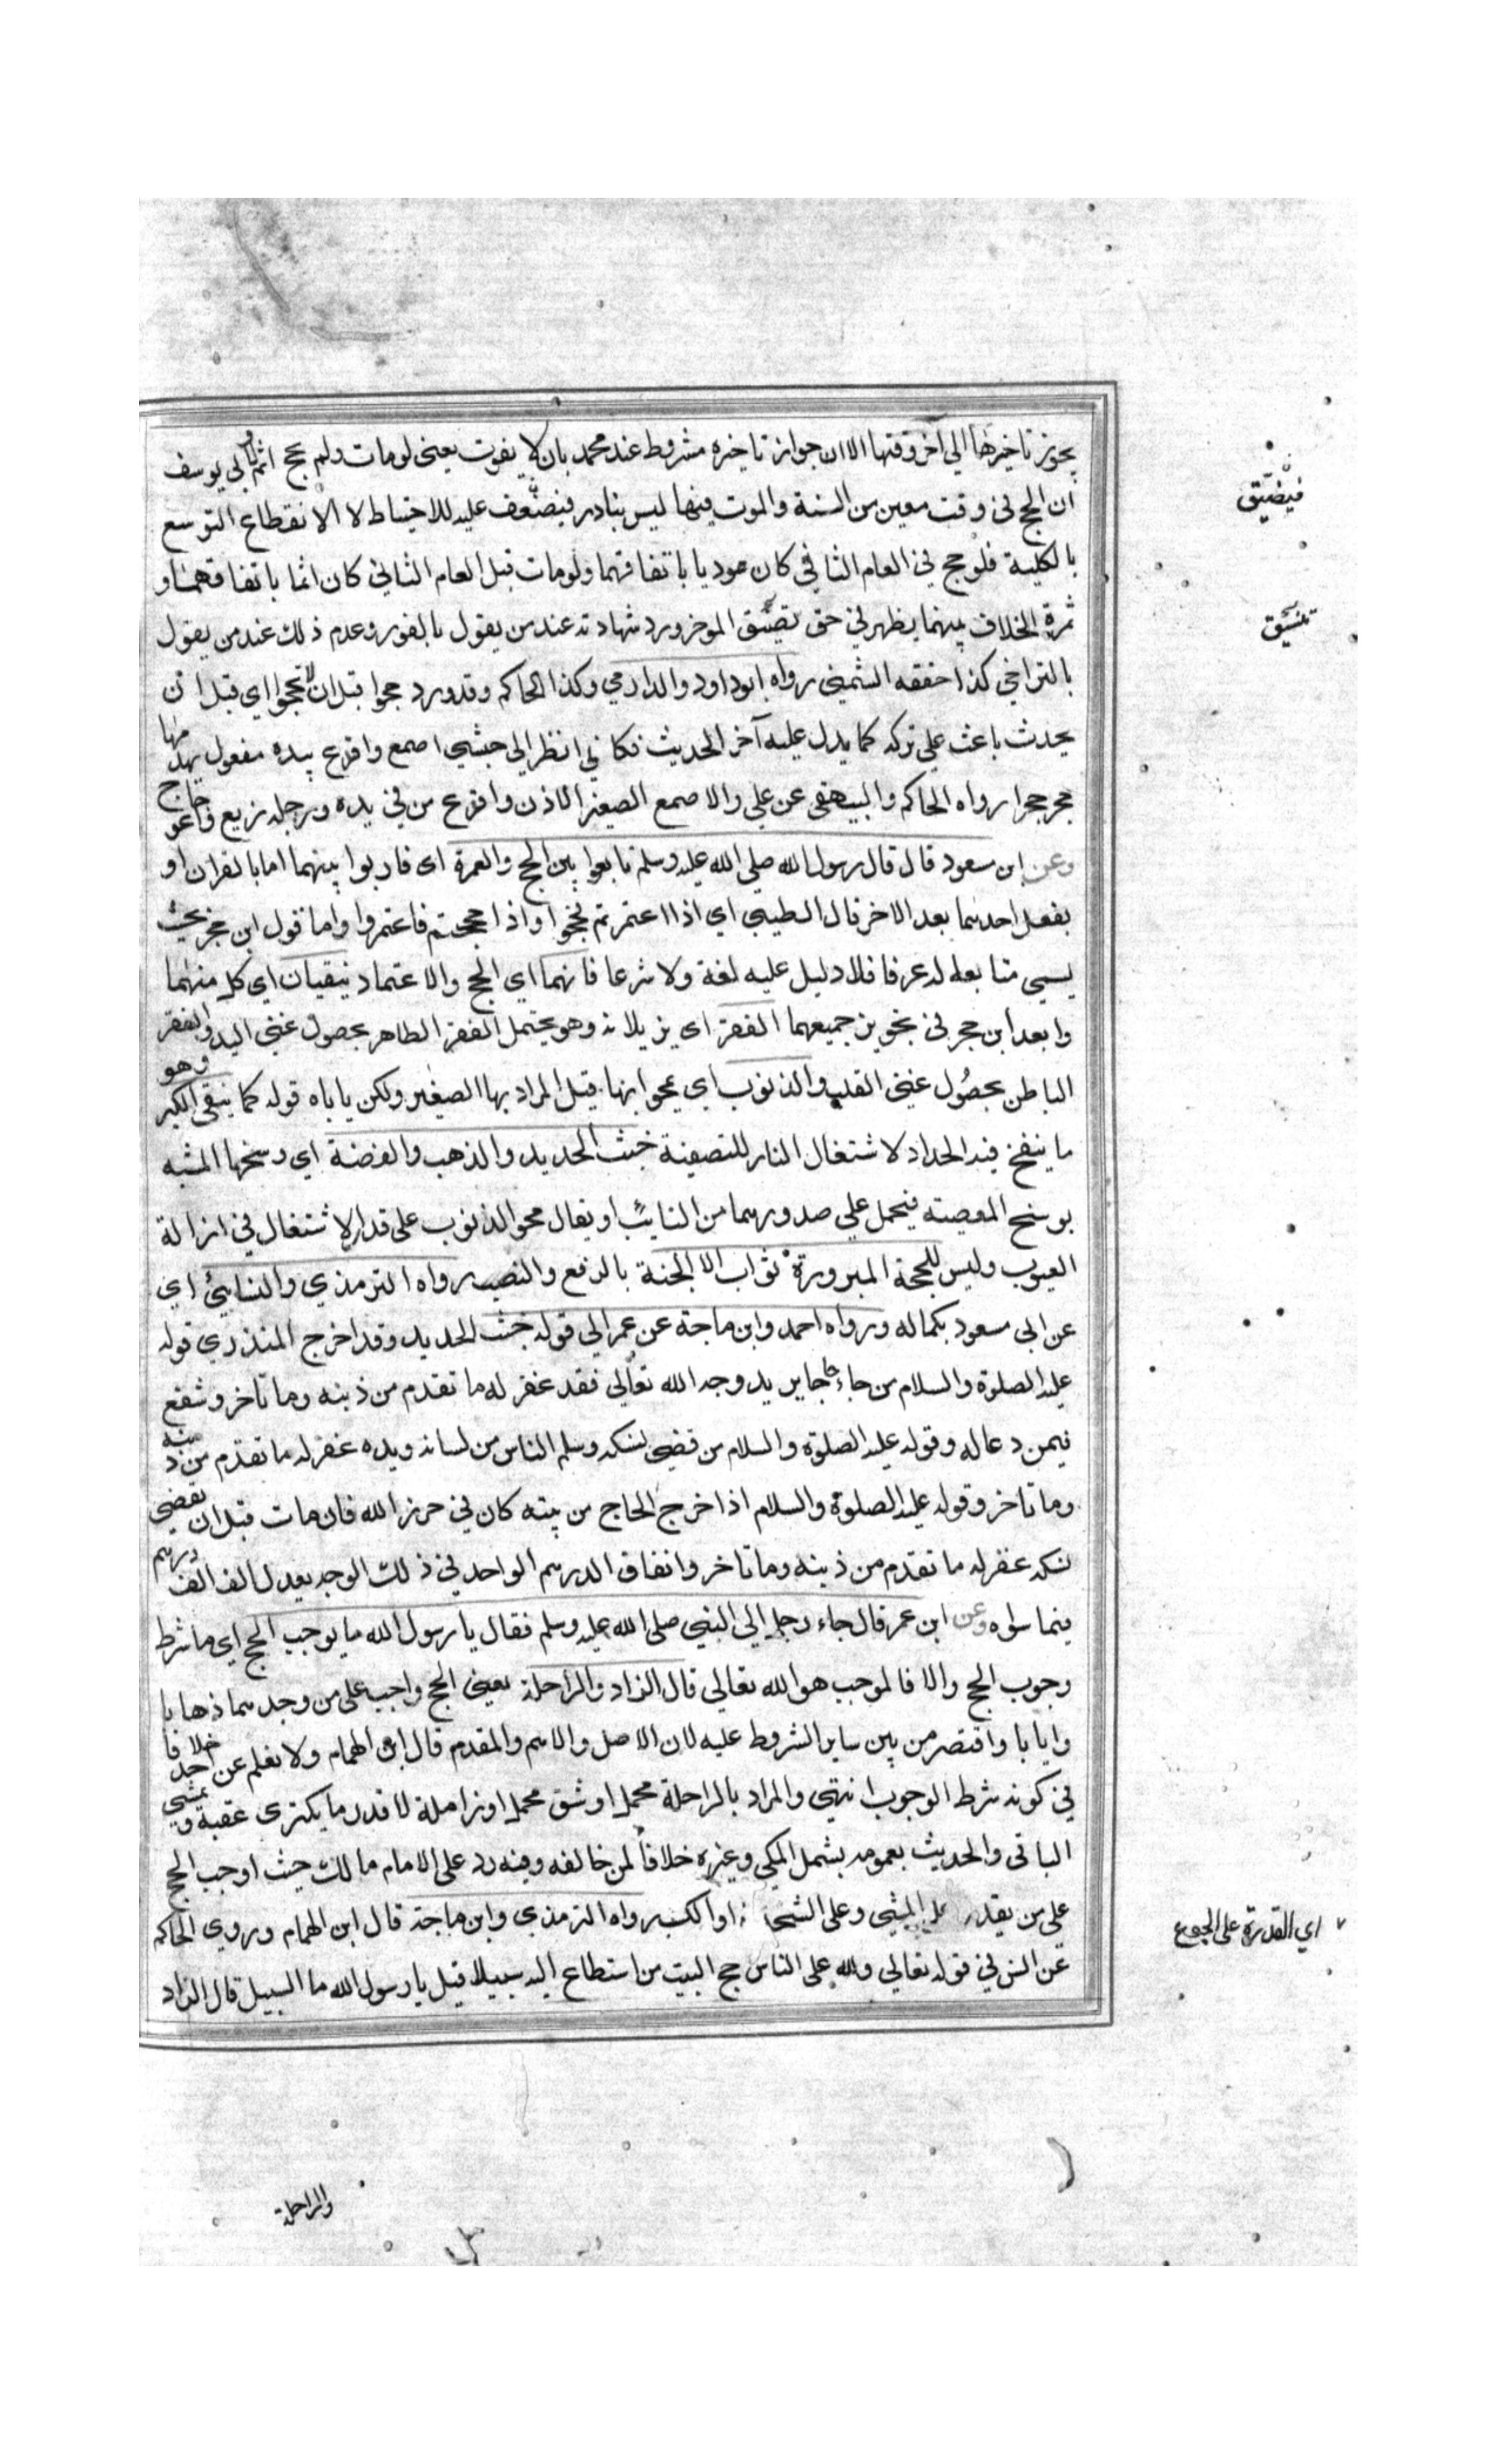 يجوز تاخيرها الي آخر وقتها الا ان جواز تاخيره مشروط عند محمد بان لا يفوت يعني لو مات ولم يحج اثم ولابي يوسف
ان الحج في وقت معين من السنة والموت فيها ليس بنادر فيضعف عليه للاحتياط لا لانقطاع التوسع
بالكلية فلو حج في العام الثاني كان موديا باتفاقهما ولو مات قبل العام الثاني كان اثما باتفاقهما و
ثمرة الخلاف بينهما يظهر في حق تضيق الموخر ورد شهادته عند من يقول بالفور وعدم ذلك عند من يقول
بالتراخي كذا حققه الشمني رواه ابو داود والدارمي وكذا الحاكم وقد ورد حجوا قبل ان لا تحجوا اي قبل ان
يحدث باعث علي تركه كما يدل عليه آخر الحديث فكاني انظر الي حبشي اصمع وافدع بيده معول يهدمها
حجرا حجرا رواه الحاكم والبيهقي عن علي والاصمع الصغير الاذن وافدع من في يده ورجله زيع واعوجاج
وعن ابن مسعود قال قال رسول الله صلي الله عليه وسلم تابعوا بين الحج والعمرة اي قاربوا بينهما اما بالقران او
بفعل احدهما بعد الاخر قال الطيبي اي اذا اعتمرتم فحجوا واذا حججتم فاعتمروا واما قول ابن حجر بحيث
يسمي متابعا له عرفا فلا دليل عليه لغة ولا شرعا فانهما اي الحج والاعتماد ينقيان اي كل منهما
وابعد ابن حجر في تجويز جميعهما الفقر اي يزيلانه وهو يحتمل الفقر الظاهر بحصول غني اليد والفقر
الباطن بحصول غني القلب والذنوب اي يمحوانها قيل المراد بها الصغير ولكن ياباه قوله كما ينقي الكير وهو
ما ينفخ فيه الحداد لاشتغال النار للتصفية خبث الحديد والذهب والفضة اي وسخها المشبه
بوسخ المعصته فيحمل علي صدورهما من التايب او يقال محو الذنوب علي قدر الاشتغال في ازالة
العيوب وليس للحجة المبرورة ثواب الا الجنة بالرفع والنصب رواه الترمذي والنسائي اي
عن ابي مسعود بكماله ورواه احمد وابن ماجة عن عمر الي قوله خبث الحديد وقد اخرج المنذري قوله
عليه الصلوة والسلام من جاء حاجا يريد وجه الله تعالي فقد غفر له ما تقدم من ذنبه وما تاخر وشفع
فيمن دعا له وقوله عليه الصلوة والسلام من قضي نسكه وسلم الناس من لسانه ويده غفر له ما تقدم من ذنبه
وما تاخر وقوله عليه الصلوة والسلام اذا خرج الحاج من بيته كان في حرز الله فان مات قبل ان يقضي
نسكه غفر له ما تقدم من ذنبه وما تاخر وانفاق الدرهم الواحد في ذلك الوجه يعدل الف الف درهم
فيما سواه وعن ابن عمر قال جاء رجل الي النبي صلي الله عليه وسلم فقال يا رسول الله ما يوجب الحج اي ما شرط
وجوب الحج والا فالموجب هو الله تعالي قال الزاد والراحلة يعني الحج واجب علي من وجدهما ذهابا
وايابا واقتصر من بين ساير الشروط عليه لان الاصل والاهم والمقدم قال ابن الهمام ولا نعلم عن احد خلافا
في كونه شرط الوجوب انتهي والمراد بالراحلة محمل او شق محمل او زاملة لا قدر ما يكتري عقبة ويمشي
الباقي والحديث بعمومه يشمل المكي وغيره خلافا لمن خالفه وفيه رد علي الامام مالك حيث اوجب الحج
علي من يقدر علي المشي وعلي او الكسب رواه الترمذي وابن ماجة قال ابن الهمام وروي الحاكم
عن انس في قوله تعالي ولله علي الناس حج البيت من استطاع اليه سبيلا قيل يا رسول الله ما السبيل قال الزاد
فيضيق
اي القدرة علي الجوع
والراحلة